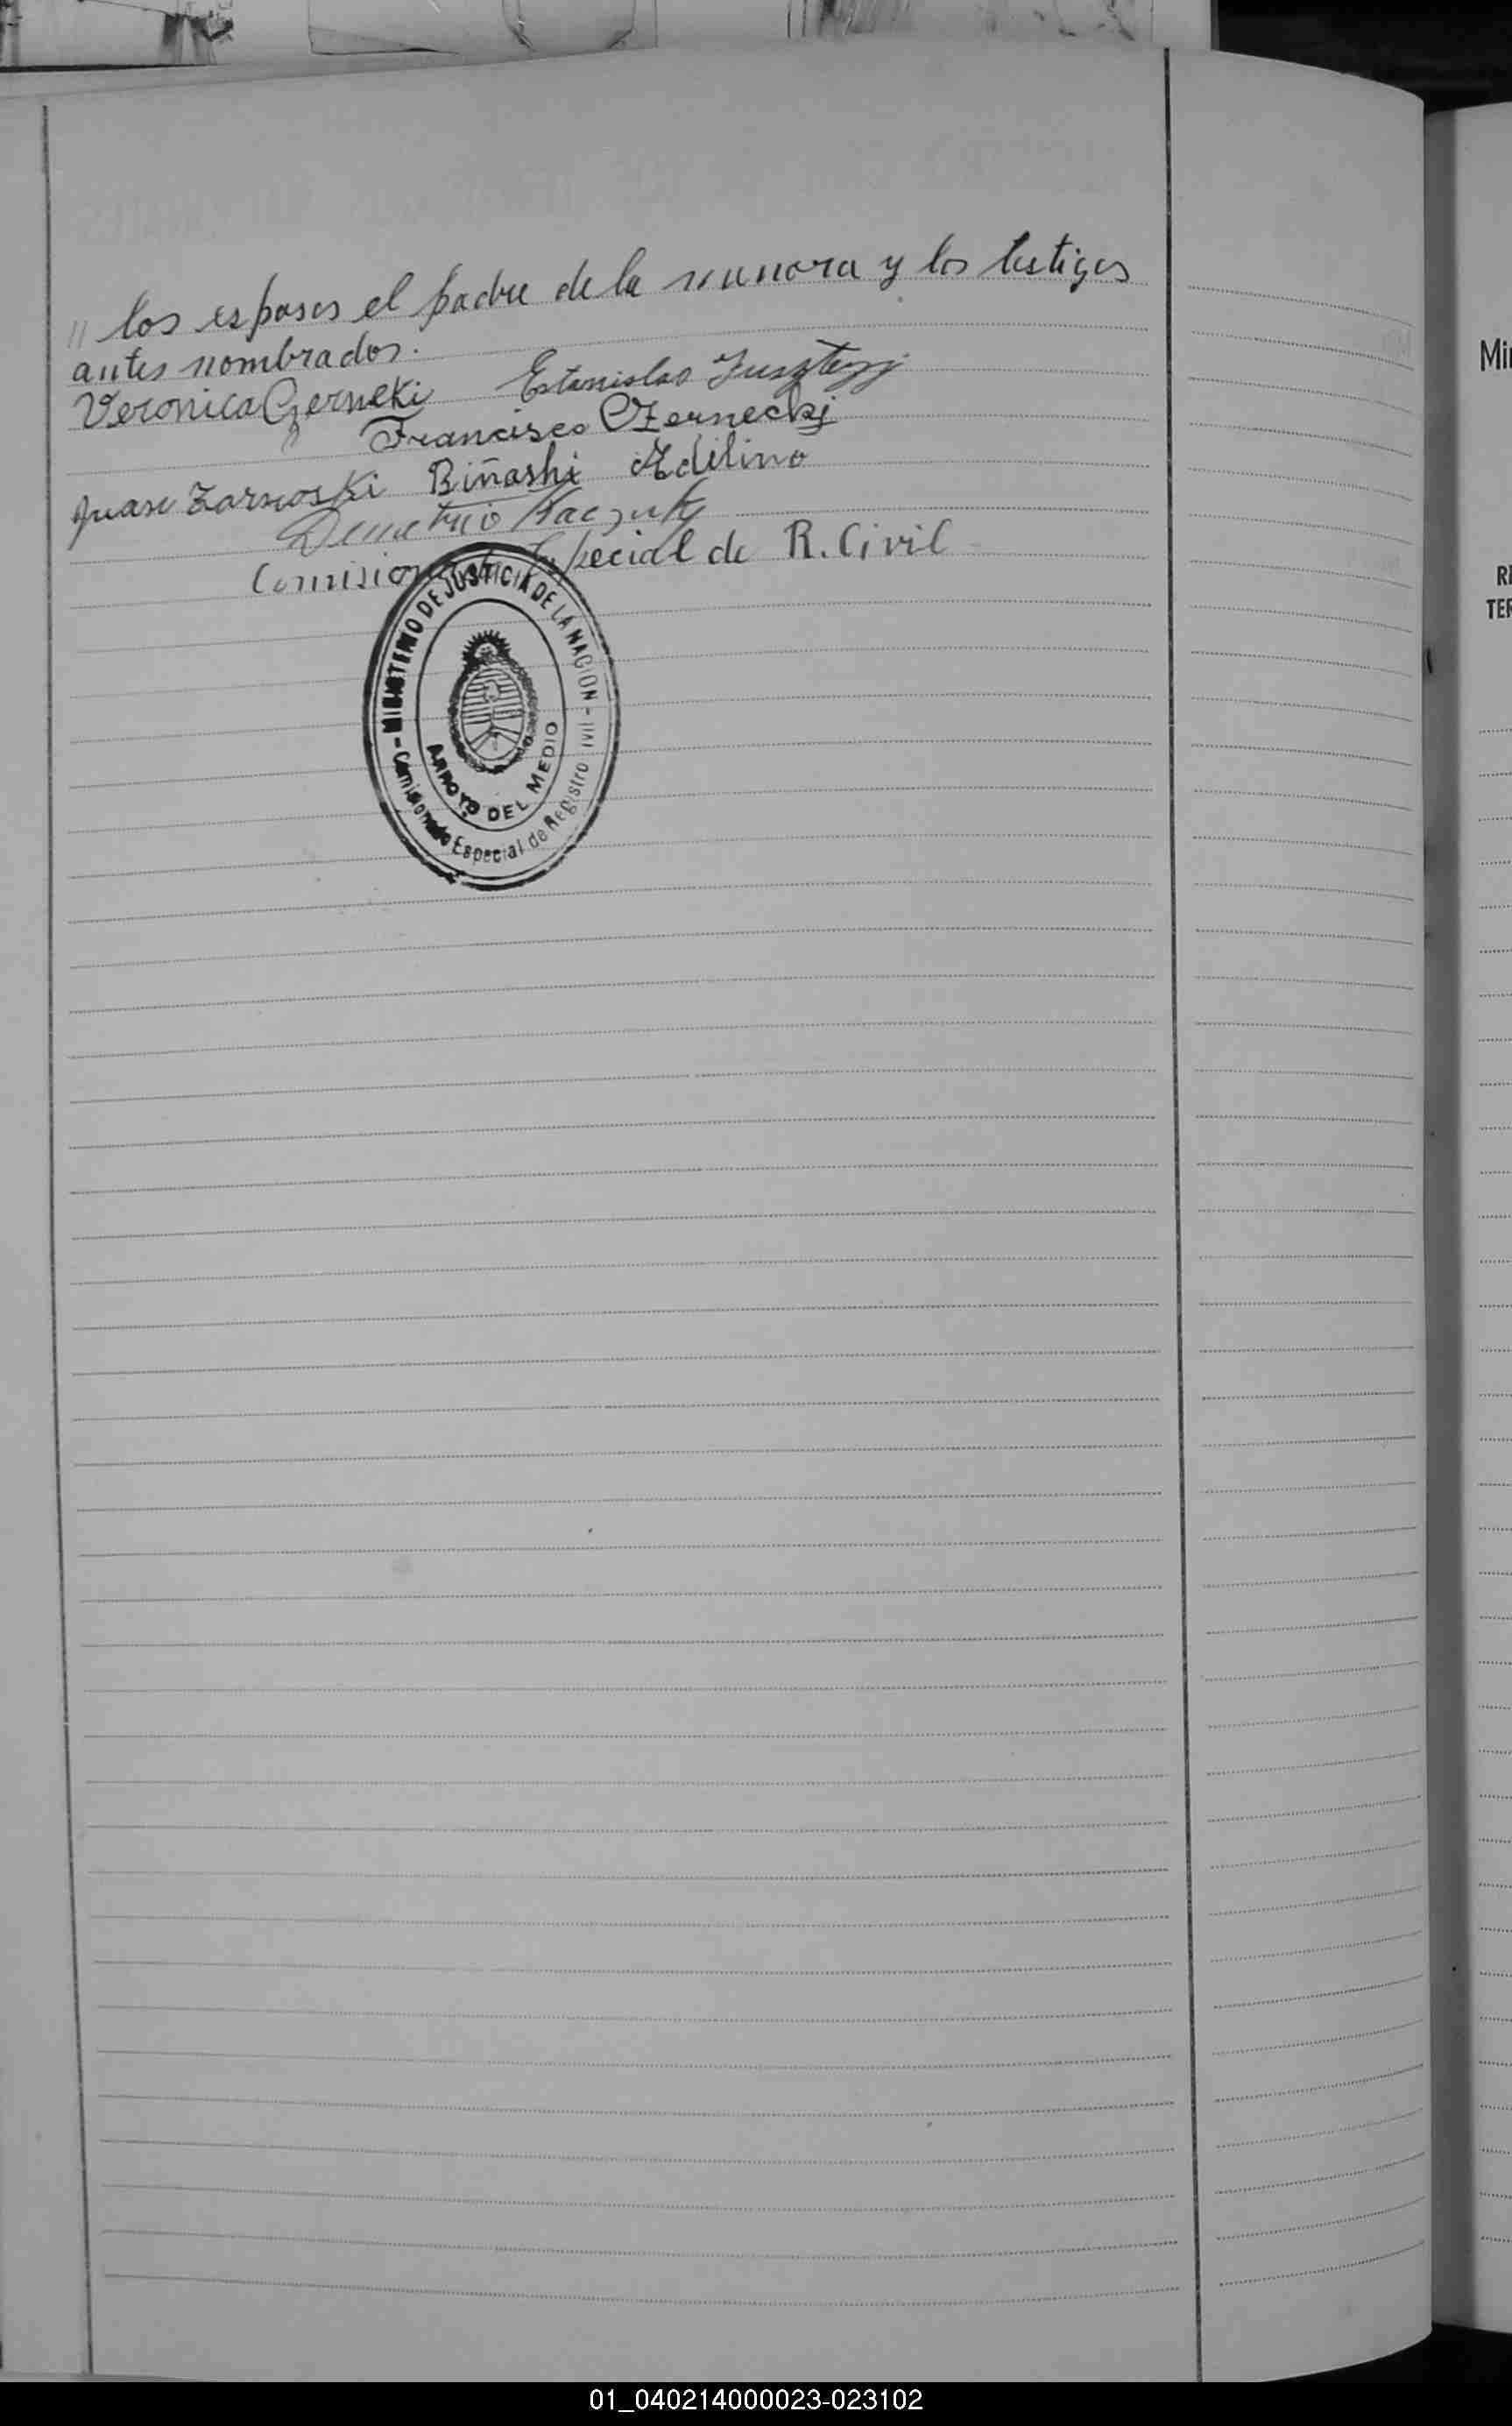 " los esposos el padre de la menora y los testigos
antes nombrados.
Veronica Czerneki Estanislao
Francisco Czernecki
Juan Zarnoski Biñashi Adelino
Demetrio Kaczuk
Comisionado Especial de R. Civil
- MINISTERIO DE JUSTICIA DE LA NACION -
Comisionado Especial de Registro ivil
ARROYO DEL MEDIO
Mi
RE
TER
01_040214000023-023102